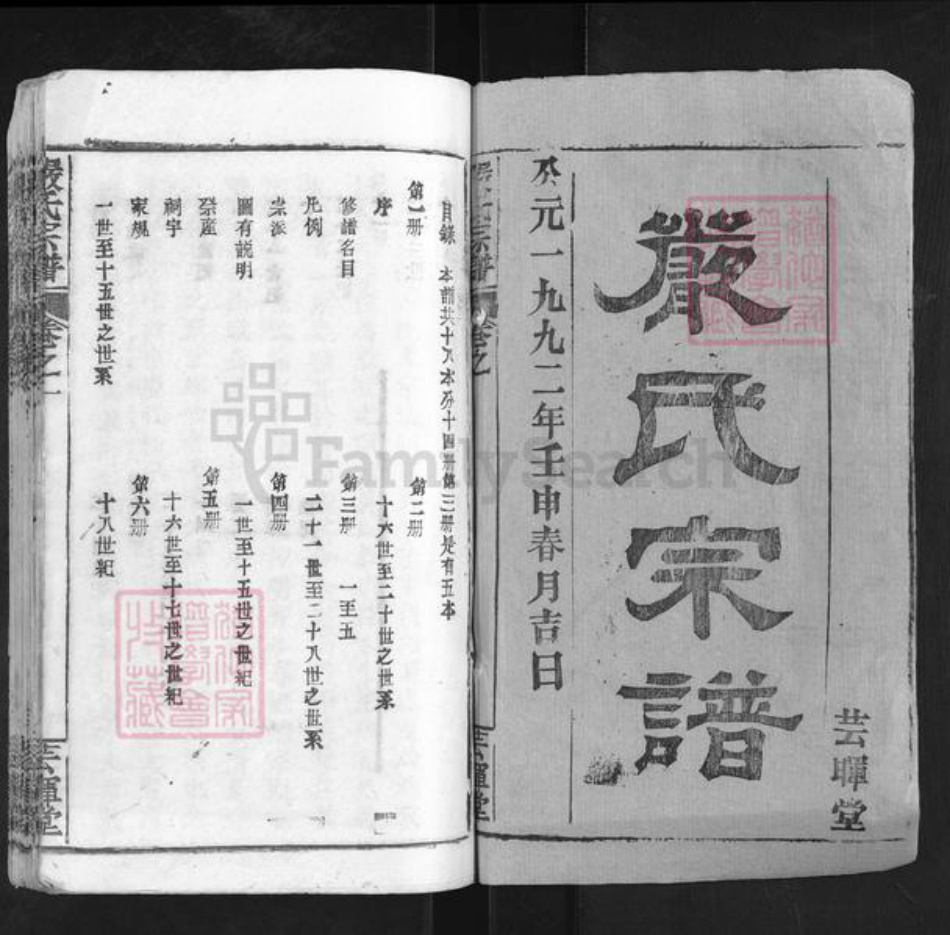 芸暉堂
嚴氏宗譜
公元一九九二年壬申春月吉日
嚴氏宗譜
目錄 本譜共十八本分十四册第三册是有五本
第一册
序
修譜名目
凡例
宗派
圖有説明
祭產
祠宇
家規
一世至十五世之世系
第二册
十六世至二十世之世系
第三册 一至五
二十一世至二十八世之世系
第四册
一世至十五世之世紀
第五册
十六世至十七世之世紀
第六册
十八世紀
嚴氏宗譜 卷之一 芸暉堂
FamilySearch